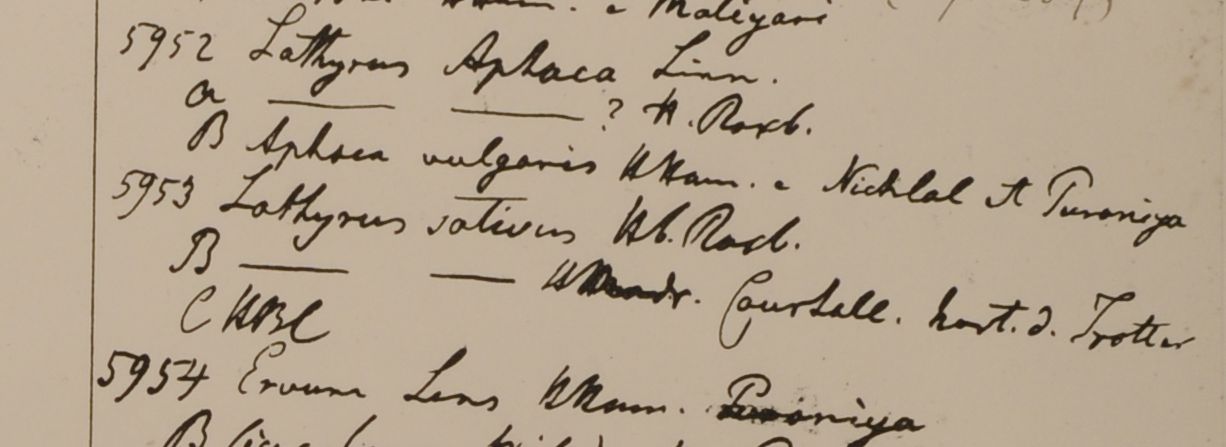 Ham. e Maligari
5952 Lathyrus Aphaca Linn.
a ? H. Roxb.
B Aphaca vulgaris HHam. e Nichlal et Puraniya
5953 Lathyrus sativus Hb. Roxb.
B Courtall. hort. d. Trotter
C HBC
5954 Ervum Lens HHam. Puraniya
B